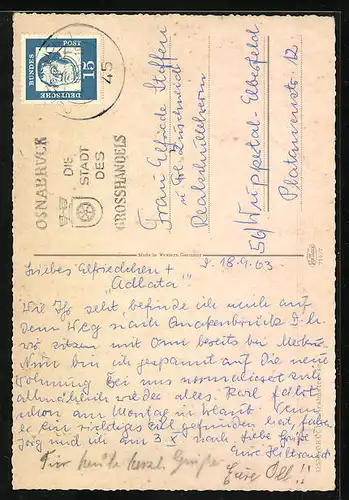 DEUTSCHE
BUNDES
POST
15
45
OSNABRÜCK
DIE
STADT
DES
GROSSHANDELS
Frau Elfriede Steffen
u. Frl.
Realschullehrerin
56 / Wuppertal-Elberfeld
Platanenstr. 12
Made in Western Germany
Liebes Elfriedchen +
18.9.63
"Adlata"
Wie Ihr seht, befinde ich mich auf
dem Weg nach Quakenbrück d.h.
wir sitzen mit Omi bereits bei
Nun bin ich gespannt auf die neue
Wohnung. Bei uns normalisiert sich
allmählich wieder alles. Karl fährt
schon am Montag in Urlaub. Wenn
er ein richtiges Ziel gefunden hat, fahren
Jörg und ich am 3.X. nach. Liebe Grüße
Eure Hiltraud
Für heute herzl. Grüße
Eure